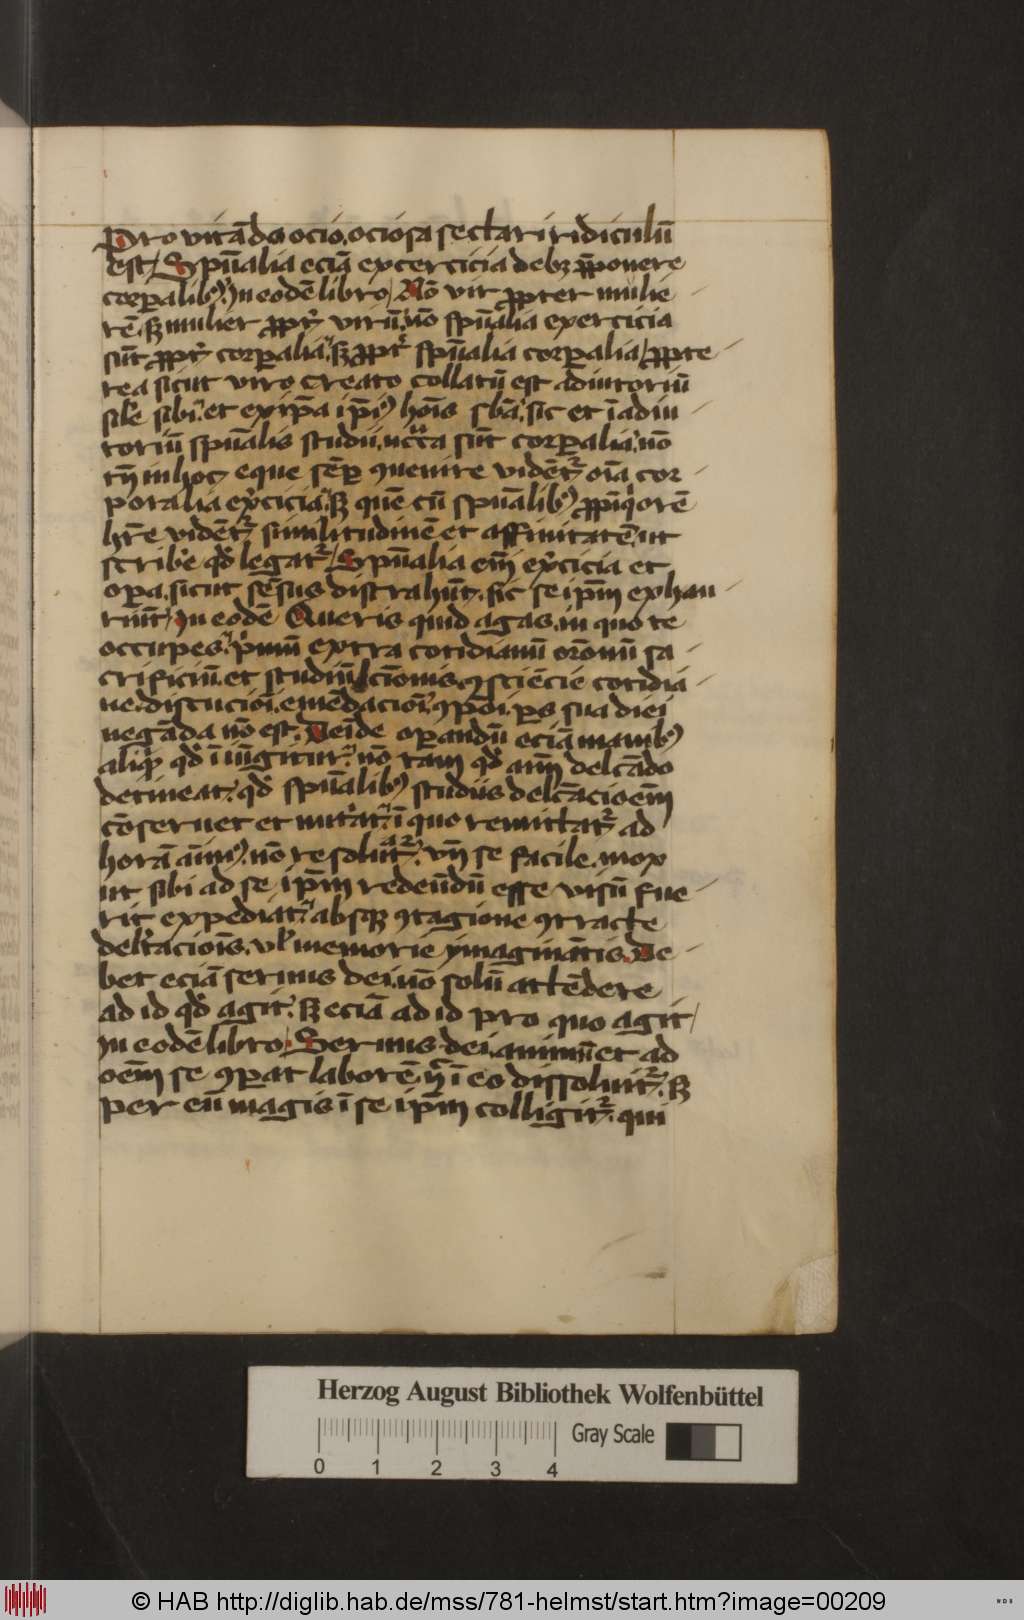 Pro vitādo ocio. ociosa sectari ridiculū
est / Spūalia eciā excercicia debꝫ p̄ponere
corꝑalibꝰ. In eodē libro / Nō vir ꝓpter mulie
rē. sꝫ mulier ꝓpt᷑ virū. nō spūalia exercicia
sūt ꝓpt᷑ corꝑalia. sꝫ ꝓpt᷑ spūalia corꝑalia / ꝓpte
rea sicut viro creato collatū est adiutoriū
sil̄e sibi. et ex ip̄a ip̄iꝰ hoīs sbā. sic et ī adiu
toriū spūalis studii. nccͣia sūt corꝑalia. nō
tn̄ in hoc eque sēꝑ ꝯuenire vidēt᷑ oīa cor
poralia ex᷑cicia. sꝫ que cū spūalibꝰ ꝓpīqͥorē
hr̄e vidēt᷑ similitudinē et affinitatē. ut
scribe᷑ qd̓ legat᷑ / Spūalia em̄ ex᷑cicia et
oꝑa. sicut sēsus distrahūt. sic se ip̄m exhau
riūt / In eodē Queris quid agas. in quo te
occupes. pͥmū extra cotidianū or̄onū sa
crificiū. et studiū lc̄ionis. ꝯsciēcie cotidia
ne. discucioī. emēdacioī. ꝯpōi. ꝑs sua diei
negāda nō est. Deīde oꝑandū eciā manibꝰ
aliqͥd qd̓ ī iūgitur. nō tam qd̓ aīm delcādo
detineat. qd̓ spūalibꝰ studiis delc̄acioēm
cōseruet et nut᷑at. ī quo remittat᷑ ad
horā aīmꝰ. nō resoluat᷑. vn̄ se facile. mox
ut sibi ad se ip̄m redeūdū esse visū fue
rit expediat. absqꝫ ꝯtagione ꝯtracte
delc̄acioīs. vl̓ memorie ymagināтis. De
bet eciā seruus dei. nō solū attēdere
ad id qd̓ agit. sꝫ eciā ad id pro quo agit /
In eodē libro / Seruus dei. animū et ad
oēm se ꝯꝑat laborē. n̄ ī eo dissoluit᷑. sꝫ
per eū magis ī se ip̄m colligit᷑. qui
Herzog August Bibliothek Wolfenbüttel
Gray Scale
0 1 2 3 4
© HAB http://diglib.hab.de/mss/781-helmst/start.htm?image=00209